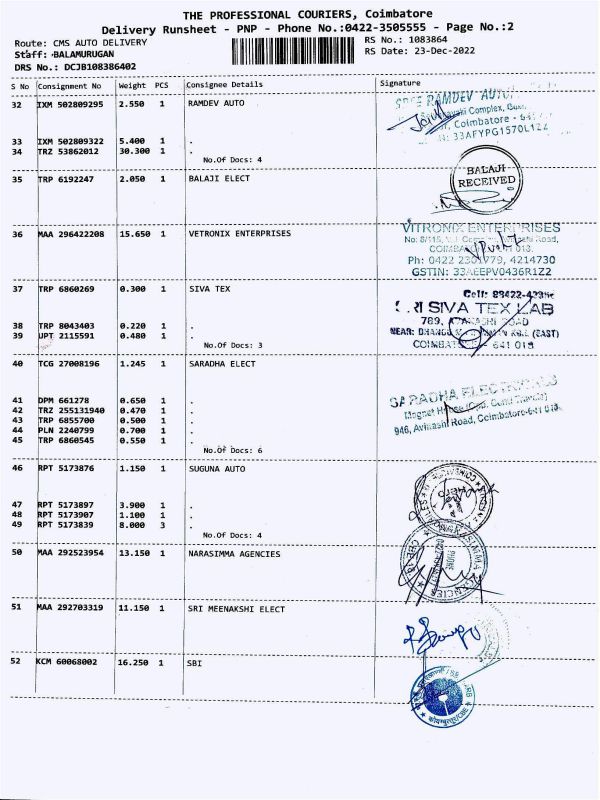 THE PROFESSIONAL COURIERS, Coimbatore
Delivery Runsheet - PNP - Phone No.:0422-3505555 - Page No.:2
Route: CMS AUTO DELIVERY
RS No.: 1083864
Staff: BALAMURUGAN
RS Date: 23-Dec-2022
DRS No.: DCJB108386402
S No Consignment No Weight PCS Consignee Details Signature
32 IXM 502809295 2.550 1 RAMDEV AUTO
33 IXM 502809322 5.400 1 .
34 TRZ 53862012 30.300 1 .
No.Of Docs: 4
SREE RAMDEV
Complex,
Coimbatore - 641
33AFYPG1570L1Z4
35 TRP 6192247 2.050 1 BALAJI ELECT
BALAJI
RECEIVED
36 MAA 296422208 15.650 1 VETRONIX ENTERPRISES
VITRONIX ENTERPRISES
Road,
Ph: 0422 4214730
GSTIN: 33AEEPV0436R1Z2
37 TRP 6860269 0.300 1 SIVA TEX
38 TRP 8043403 0.220 1 .
39 UPT 2115591 0.480 1 .
No.Of Docs: 3
Cell: 98422-
SRI SIVA TEX LAB
789, ROAD
NEAR: (EAST)
COIMBATORE - 641 018
40 TCG 27008196 1.245 1 SARADHA ELECT
41 DPM 661278 0.650 1 .
42 TRZ 255131940 0.470 1 .
43 TRP 6855700 0.500 1 .
44 PLN 2240799 0.700 1 .
45 TRP 6860545 0.550 1 .
No.Of Docs: 6
SARADHA ELECTRONICS
Magnet House
946, Avinashi Road, Coimbatore-641 018
46 RPT 5173876 1.150 1 SUGUNA AUTO
47 RPT 5173897 3.900 1 .
48 RPT 5173907 1.100 1 .
49 RPT 5173839 8.000 3 .
No.Of Docs: 4
50 MAA 292523954 13.150 1 NARASIMMA AGENCIES
51 MAA 292703319 11.150 1 SRI MEENAKSHI ELECT
52 KCM 60068002 16.250 1 SBI